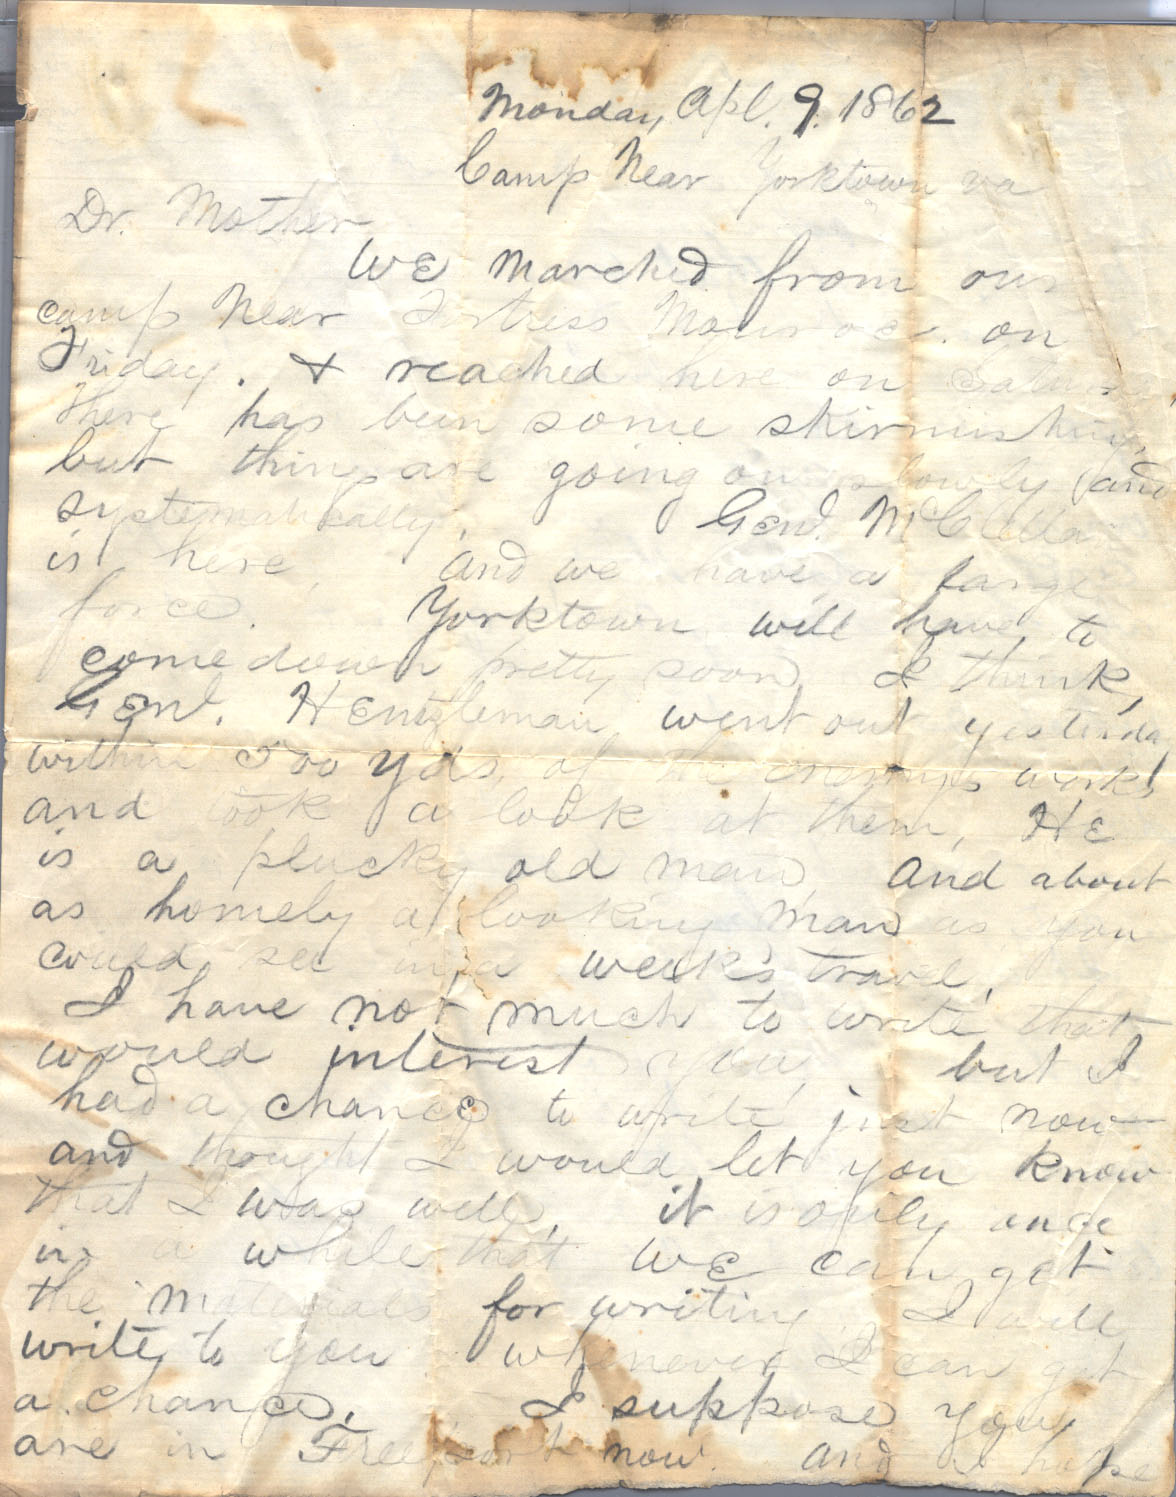 Monday, Apl. 9. 1862
Camp Near Yorktown va
Dr. Mother
WE Marched from our
camp Near Fortress Monroe. on
Friday. & reached here on
There has been some skirmishing,
but things are going on slowly and
systematically. Genl. McClellan
is here, and we have a large
force. Yorktown will have to
come down pretty soon I think,
Genl. Hentzleman went out yesterda
within 500 yds. of the enemys works
and took a look at them, HE
is a plucky old man And about
as homely a looking man as you
could see in a week's travel,
I have not much to write that
would interest you, but I
had a chance to write just now
and thought I would let you know
that I was well, it is only once
in a while that WE can get
the materials for writing I will
write to you whenever I can get
a chance, I suppose you
are in Freeport now. and I hope